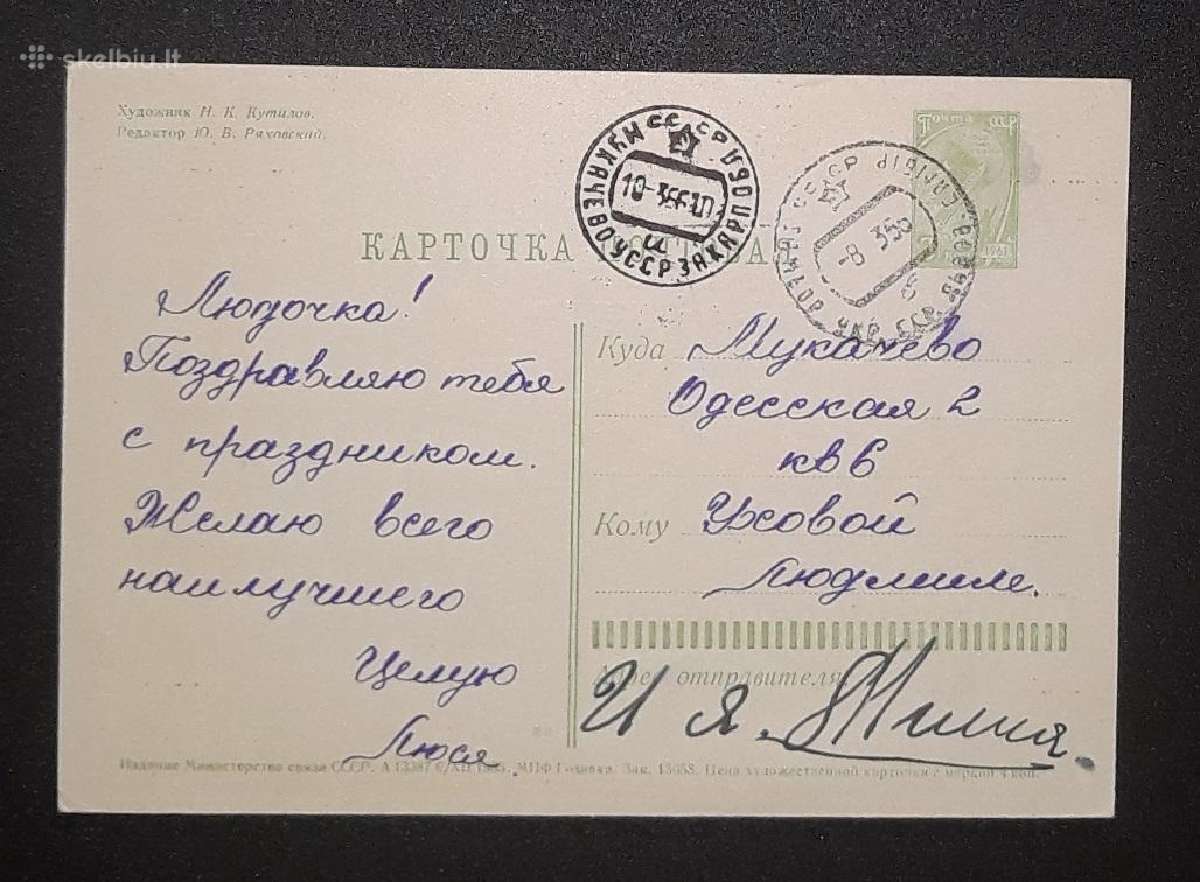 skelbiu.lt
Художник Н. К. Кутилов.
Редактор Ю. В. Ряховский.
Почта СССР
1961
СССР МУКАЧЕВО УССР ЗАКАРП ОБЛ
10-366
СССР УКР. ССР
-8 366
КАРТОЧКА ПОЧТОВАЯ
Людочка!
Поздравляю тебя
с праздником.
Желаю всего
наилучшего
Целую
Люся
Куда Мукачево
Одесская 2
кв 6
Кому Ужовой
Людмиле.
Адрес отправителя:
И я. Милия.
Издание Министерства связи СССР. А 13387 XII 1965. МПФ Гознака. Зак. 13658. Цена художественной карточки с маркой 4 коп.